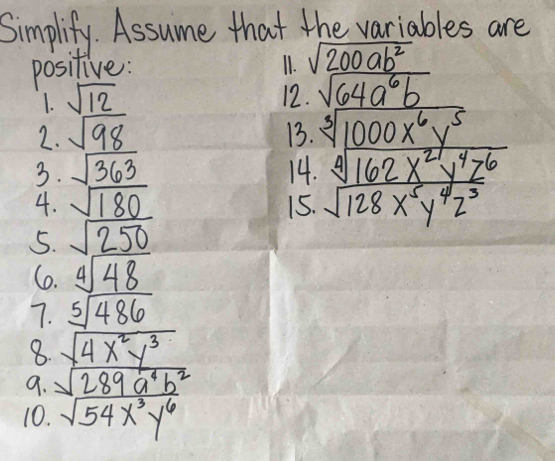 Simplify. Assume that the variables are
positive:
1. √12
2. √98
3. √363
4. √180
5. √250
6. ∜48
7. ⁵√486
8. √4x²y³
9. √289a⁴b²
10. √54x³y⁶
11. √200ab²
12. √64a⁶b
13. ∛1000x⁶y⁵
14. ∜162x²y⁴z⁶
15. √128x⁵y⁴z³